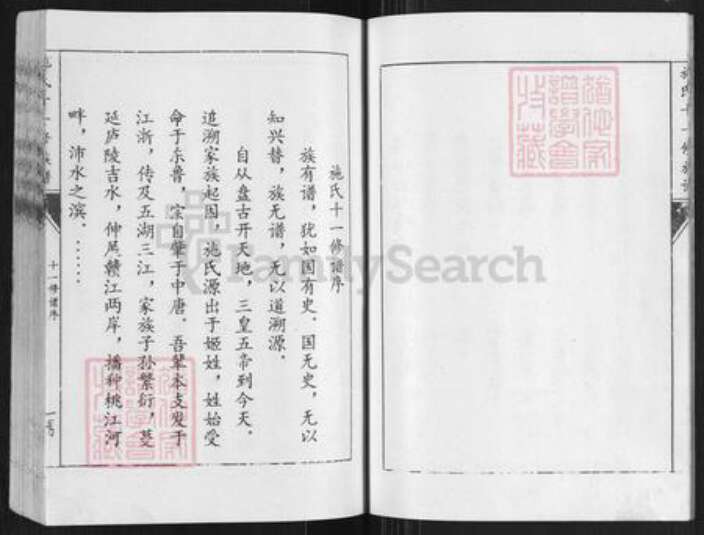 施氏十一修谱序
族有谱，犹如国有史．国无史，无以
知兴替，族无谱，无以道溯源．
自从盘古开天地，三皇五帝到今天．
追溯家族起因，施氏源出于姬姓，姓始受
命于东鲁，宗自肇于中唐．吾辈本支发于
江浙，传及五湖三江，家族子孙繁衍，蔓
延庐陵吉水，伸尾赣江两岸，播种桃江河
畔，沛水之滨．……
十一修谱序
FamilySearch